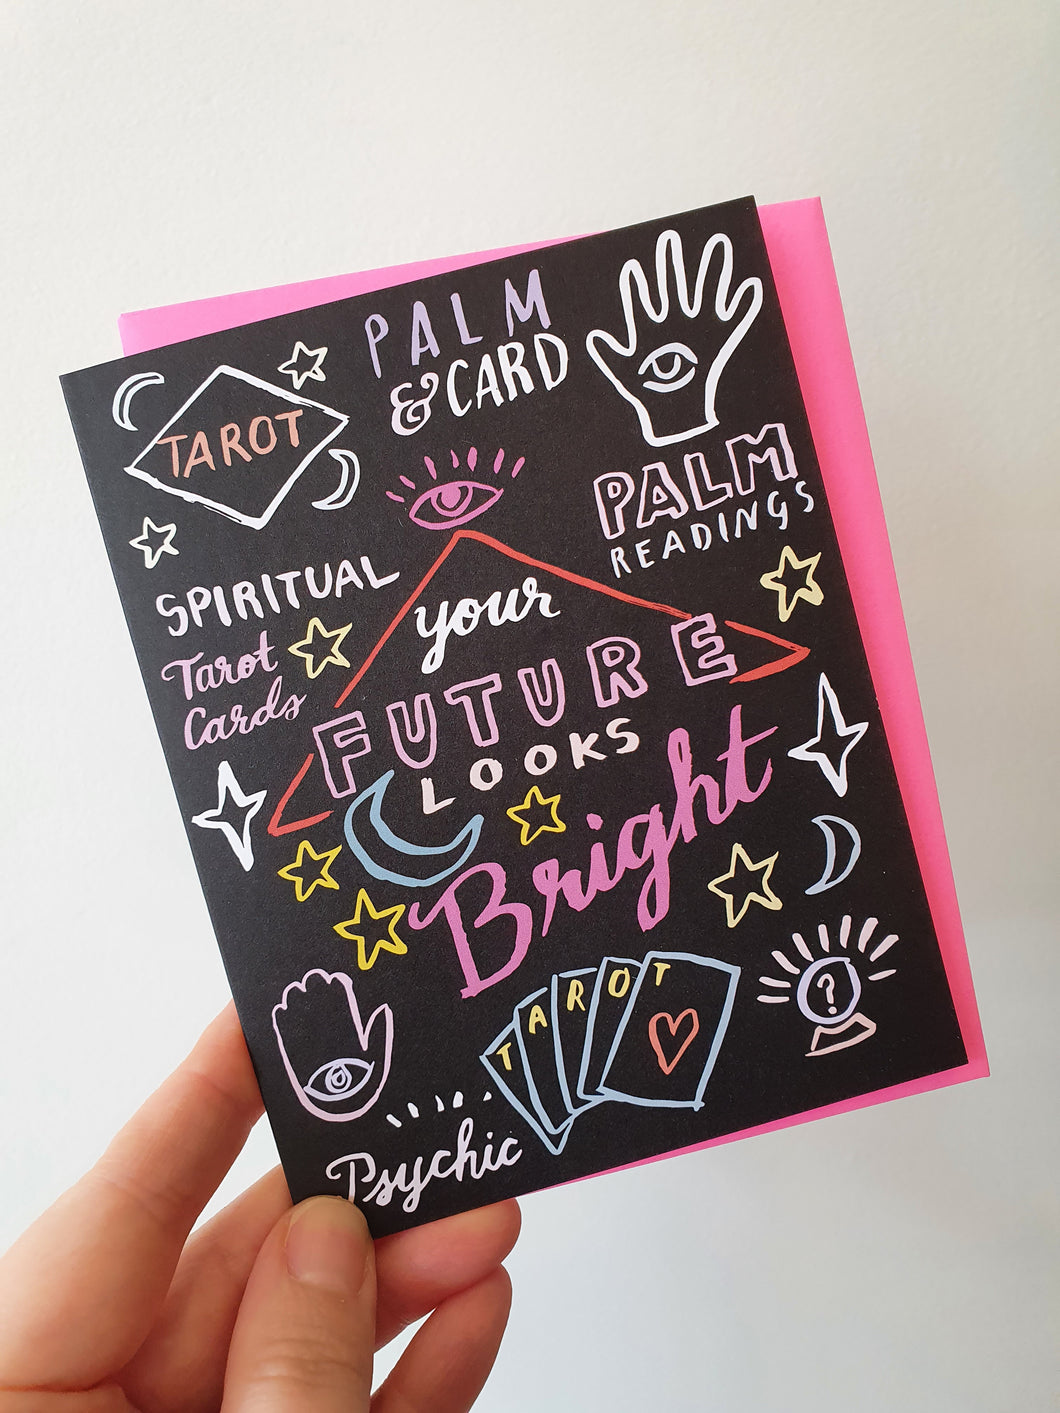 PALM
& CARD
TAROT
PALM
READINGS
SPIRITUAL
Tarot
Cards
your
FUTURE
LOOKS
Bright
TAROT
?
Psychic